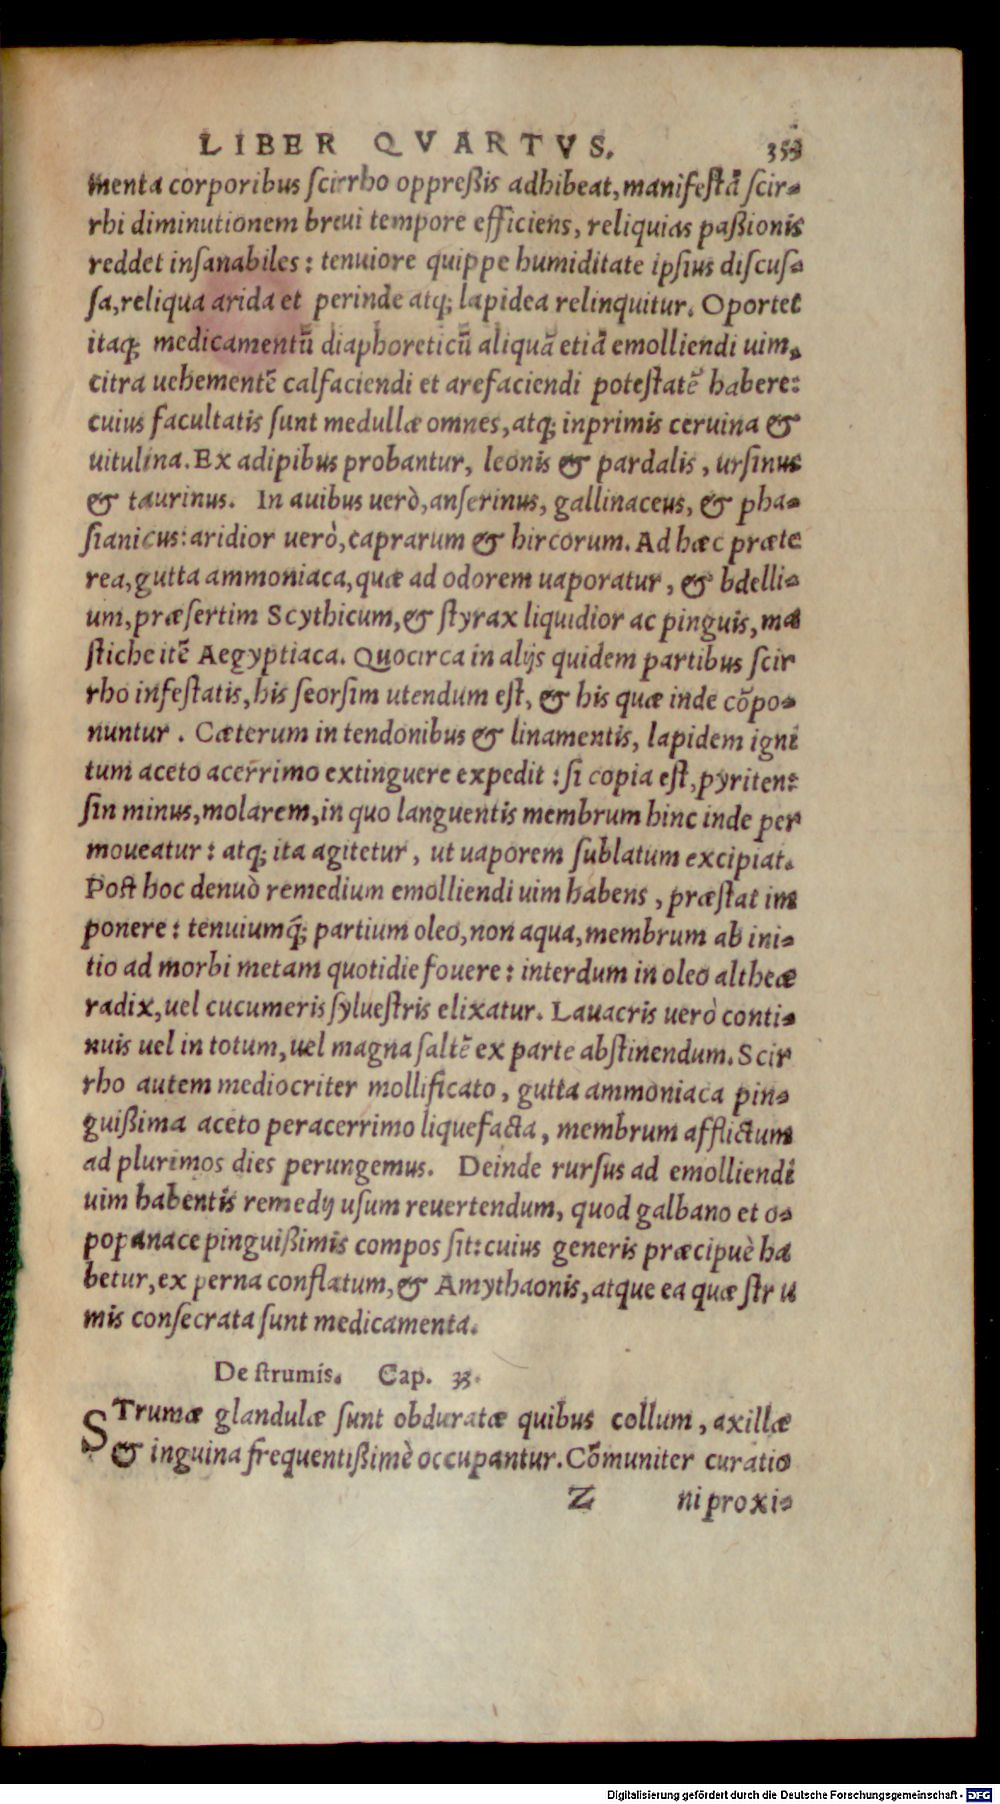 LIBER QVARTVS. 353
menta corporibus scirrho oppreßis adhibeat, manifestā scir-
rhi diminutionem breui tempore efficiens, reliquias paßionis
reddet insanabiles: tenuiore quippe humiditate ipsius discus-
sa, reliqua arida et perinde atq; lapidea relinquitur. Oportet
itaq; medicamentū diaphoreticū aliquā etiā emolliendi uim,
citra uehementē calfaciendi et arefaciendi potestatē habere:
cuius facultatis sunt medullæ omnes, atq; inprimis ceruina &
uitulina. Ex adipibus probantur, leonis & pardalis, ursinus
& taurinus. In auibus uerò, anserinus, gallinaceus, & pha-
sianicus: aridior uerò, caprarum & hircorum. Ad hæc præte
rea, gutta ammoniaca, quæ ad odorem uaporatur, & bdelli-
um, præsertim Scythicum, & styrax liquidior ac pinguis, ma
stiche itē Aegyptiaca. Quocirca in alijs quidem partibus scir
rho infestatis, his seorsim utendum est, & his quæ inde cōpo-
nuntur. Cæterum in tendonibus & linamentis, lapidem igni
tum aceto acerrimo extinguere expedit: si copia est, pyriten:
sin minus, molarem, in quo languentis membrum hinc inde per
moueatur: atq; ita agitetur, ut uaporem sublatum excipiat.
Post hoc denuò remedium emolliendi uim habens, præstat im
ponere: tenuiumq́; partium oleo, non aqua, membrum ab ini-
tio ad morbi metam quotidie fouere: interdum in oleo altheæ
radix, uel cucumeris syluestris elixatur. Lauacris uerò conti-
nuis uel in totum, uel magna saltē ex parte abstinendum. Scir
rho autem mediocriter mollificato, gutta ammoniaca pin-
guißima aceto peracerrimo liquefacta, membrum afflictum
ad plurimos dies perungemus. Deinde rursus ad emolliendi
uim habentis remedij usum reuertendum, quod galbano et o-
popanace pinguißimis compos sit: cuius generis præcipuè ha
betur, ex perna conflatum, & Amythaonis, atque ea quæ stru
mis consecrata sunt medicamenta.
De strumis. Cap. 33.
STrumæ glandulæ sunt obduratæ quibus collum, axillæ
& inguina frequentißimè occupantur. Cōmuniter curatio
Z ni proxi-
Digitalisierung gefördert durch die Deutsche Forschungsgemeinschaft - DFG